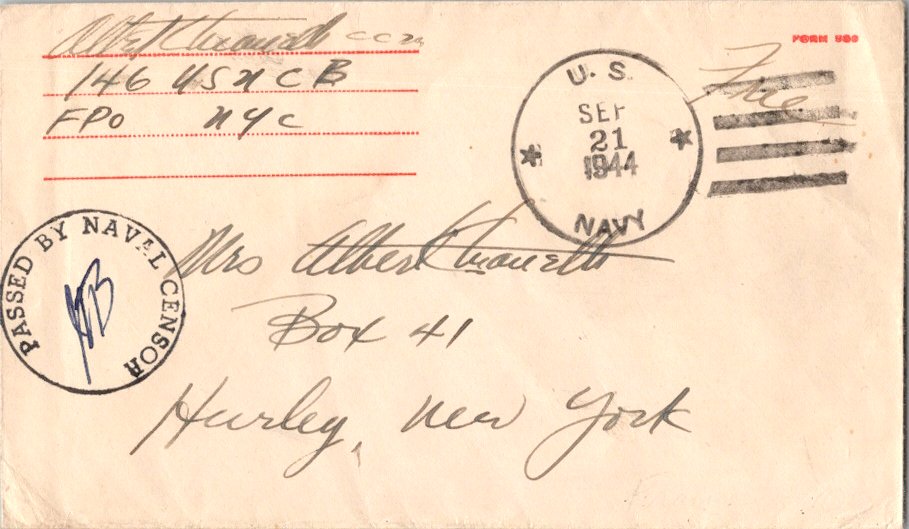 Albert CCM
146 USNCB
FPO NYC
FORM 980
Free
U. S.
SEP
21
1944
NAVY
PASSED BY NAVAL CENSOR
Mrs Albert
Box 41
Hurley, New York